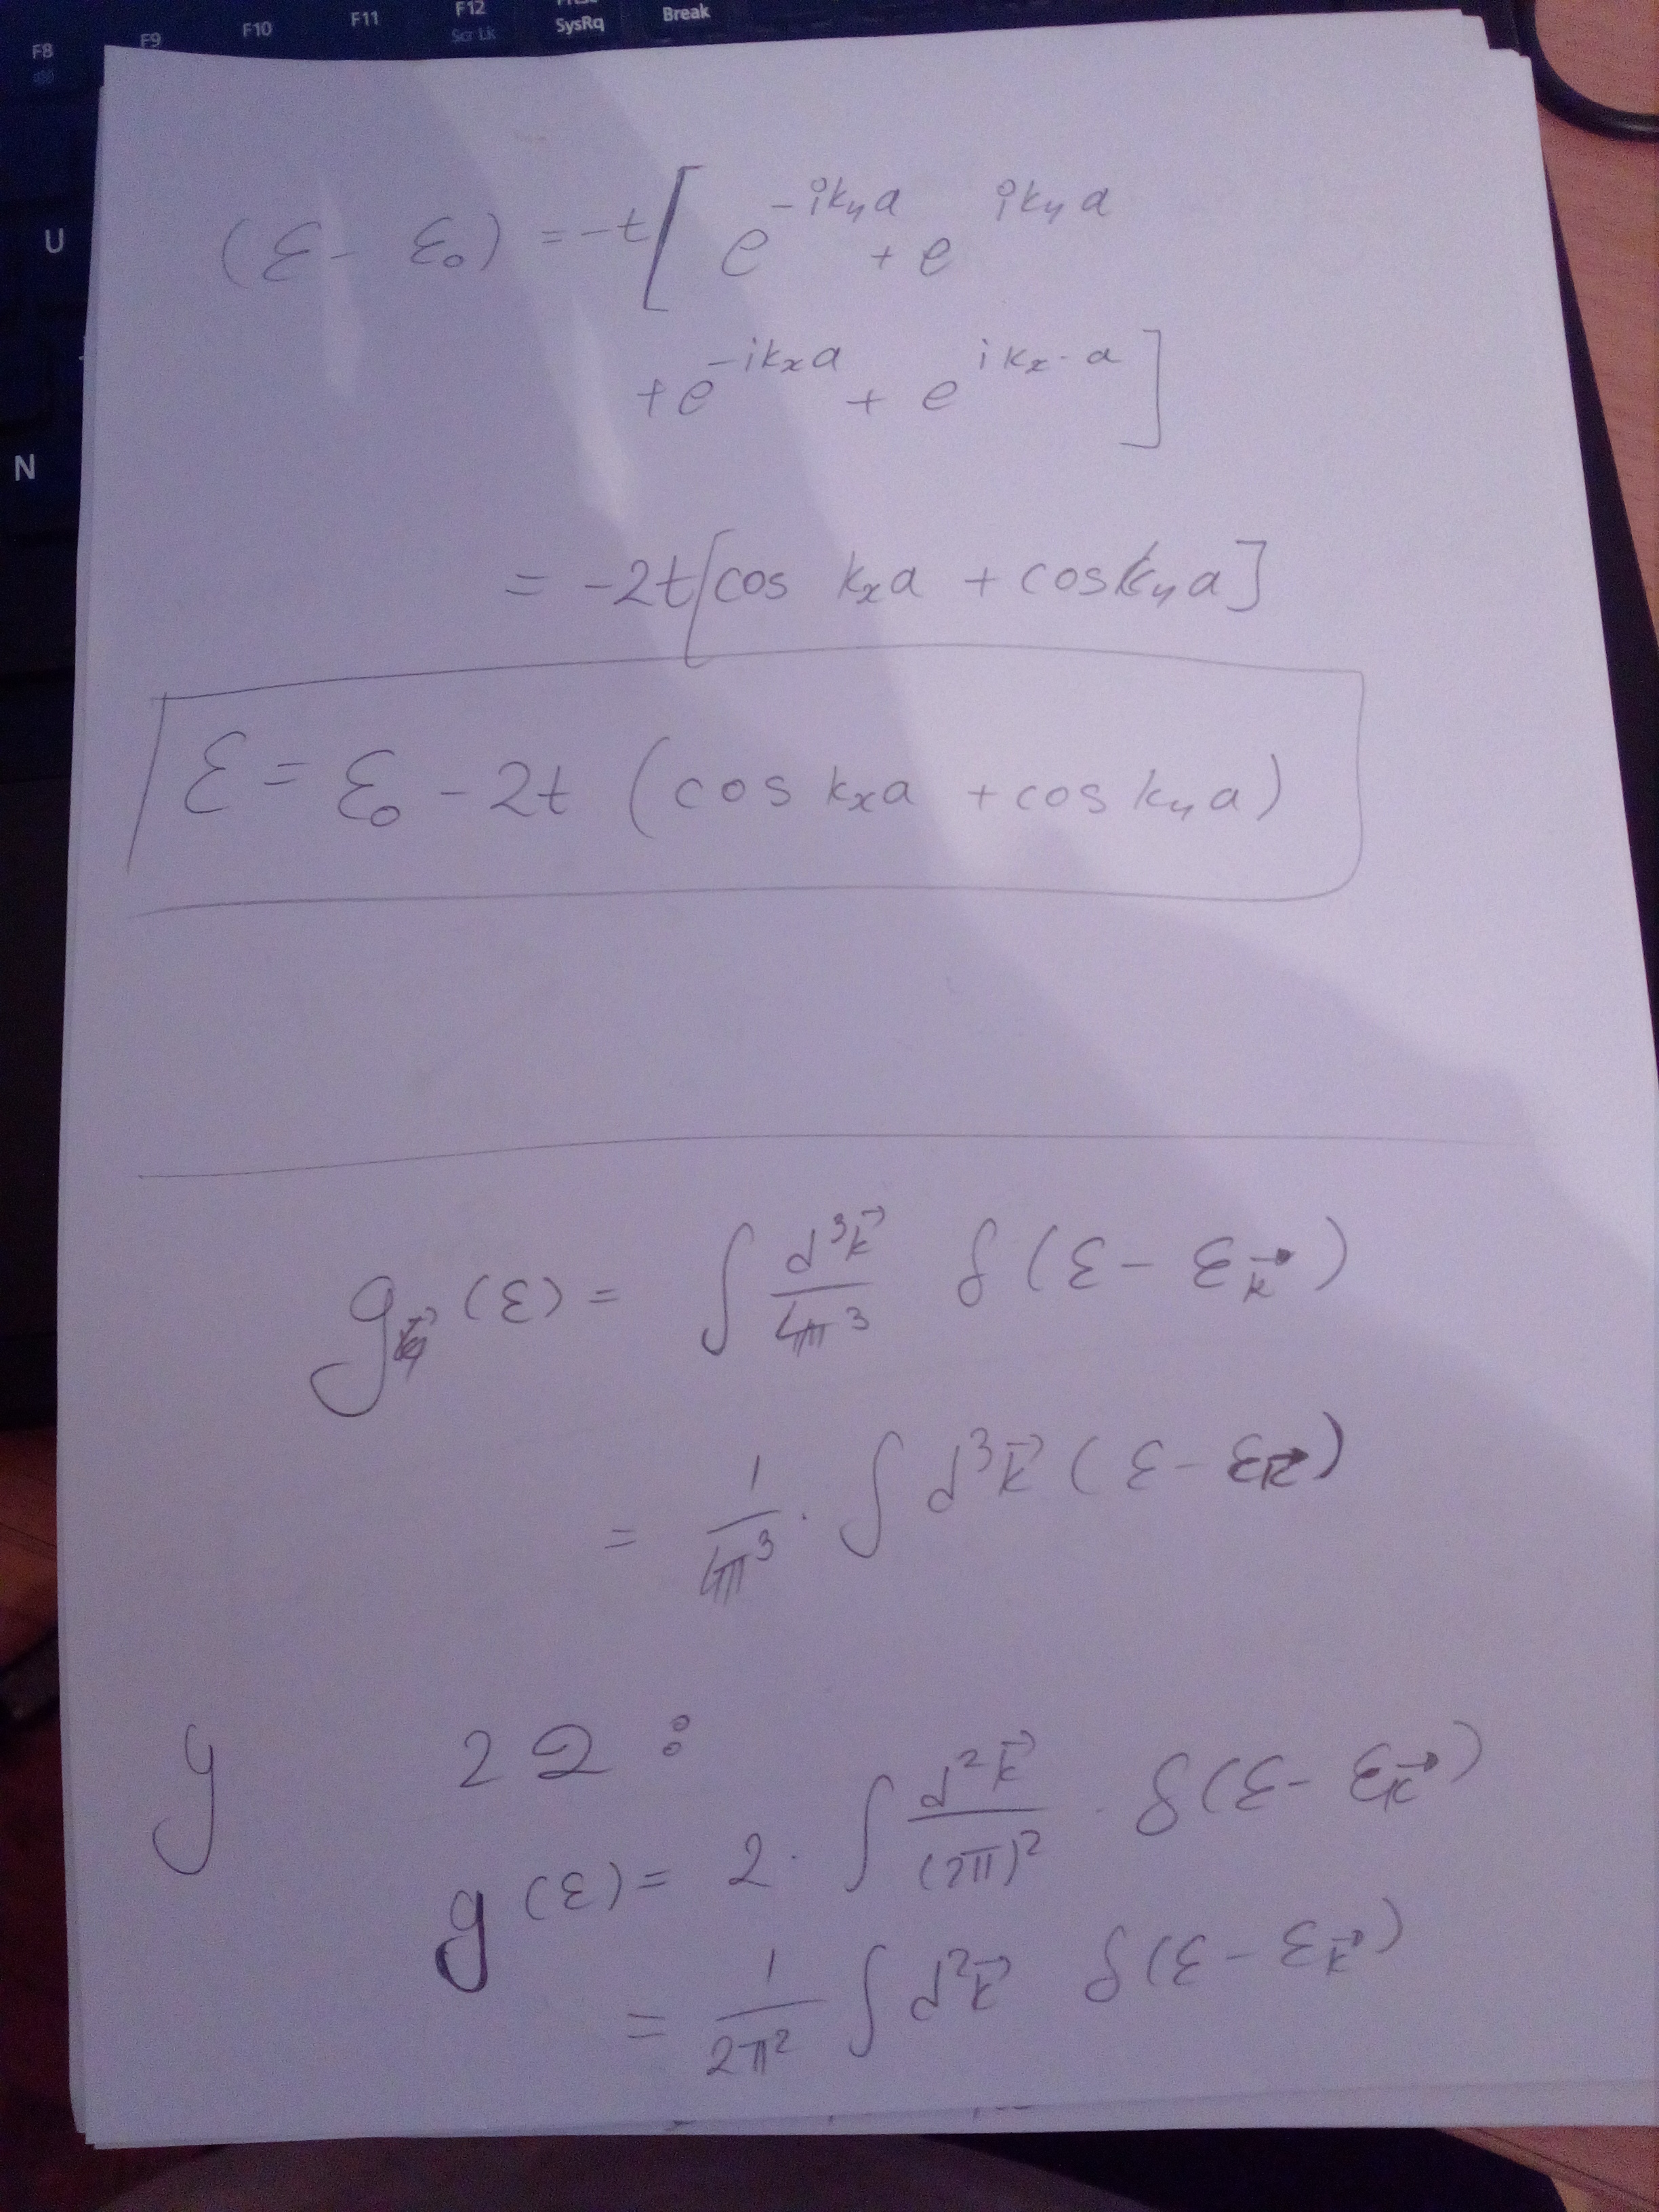 F8 F9 F10 F11 F12 Scr Lk SysRq Break
U
N
(ε - ε₀) = -t[ e^{-ik_y a} + e^{ik_y a}
+ e^{-ik_x a} + e^{ik_x · a} ]
= -2t[cos k_x a + cos k_y a]
ε = ε₀ - 2t (cos k_x a + cos k_y a)
g (ε) = ∫ d³k⃗/4π³ δ(ε - ε_k⃗)
= 1/4π³ · ∫ d³k⃗ (ε - ε_k⃗)
y 2D :
g(ε) = 2 · ∫ d²k⃗/(2π)² · δ(ε - ε_k⃗)
= 1/2π² ∫ d²k⃗ δ(ε - ε_k⃗)